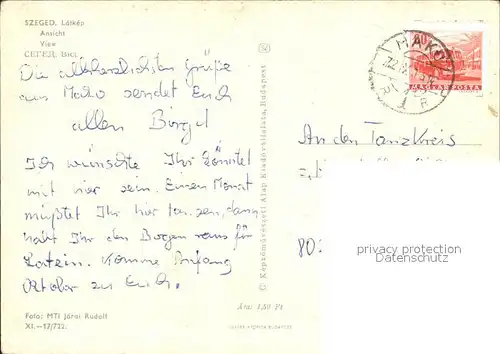 SZEGED. Látkép
Ansicht
View
СЕГЕД. Вид
Die allerherzlichsten Grüße
aus Mako sendet Euch
allen Birgit
Ich wünschte Ihr könntet
mit hier sein. Einen Monat
müßtet Ihr hier tanzen, dann
habt Ihr den Bogen raus für
Latein. Komme Anfang
Oktober zu Euch.
Foto: MTI Járai Rudolf
XI.—17/722.
Ára: 1,50 Ft
© Képzőművészeti Alap Kiadóvállalata, Budapest
MAKÓ
60
MAGYAR POSTA
An den Tanzkreis
80
privacy protection
AnsichtskartenCenter